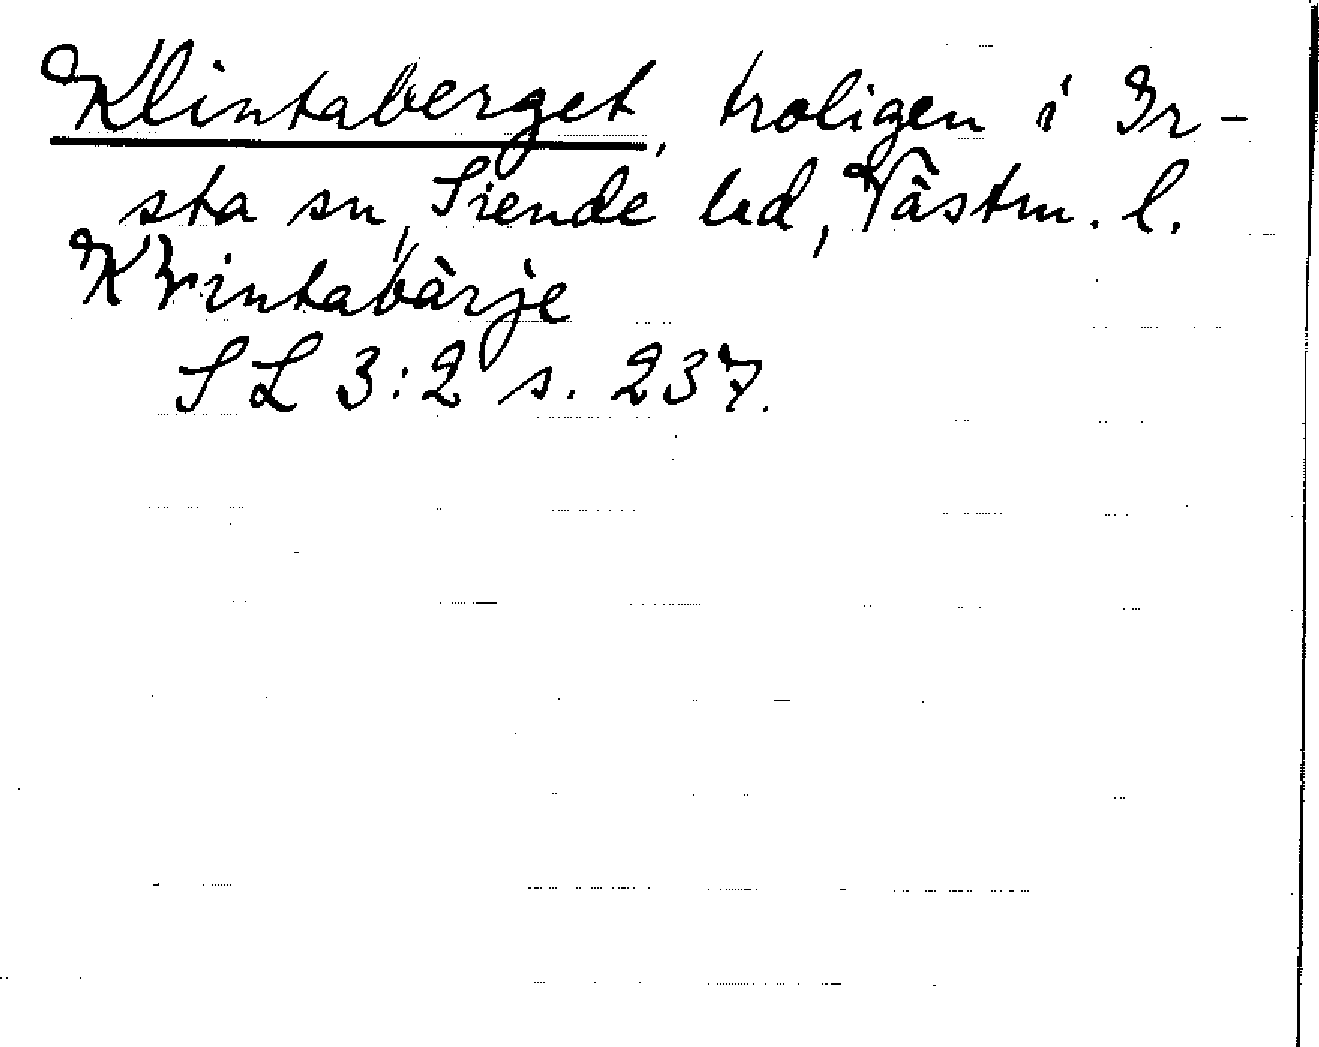 Klintaberget, troligen i Ir-
sta sn, Siende hd, Västm. l.
Klintabärje
SL 3:2 s. 237.